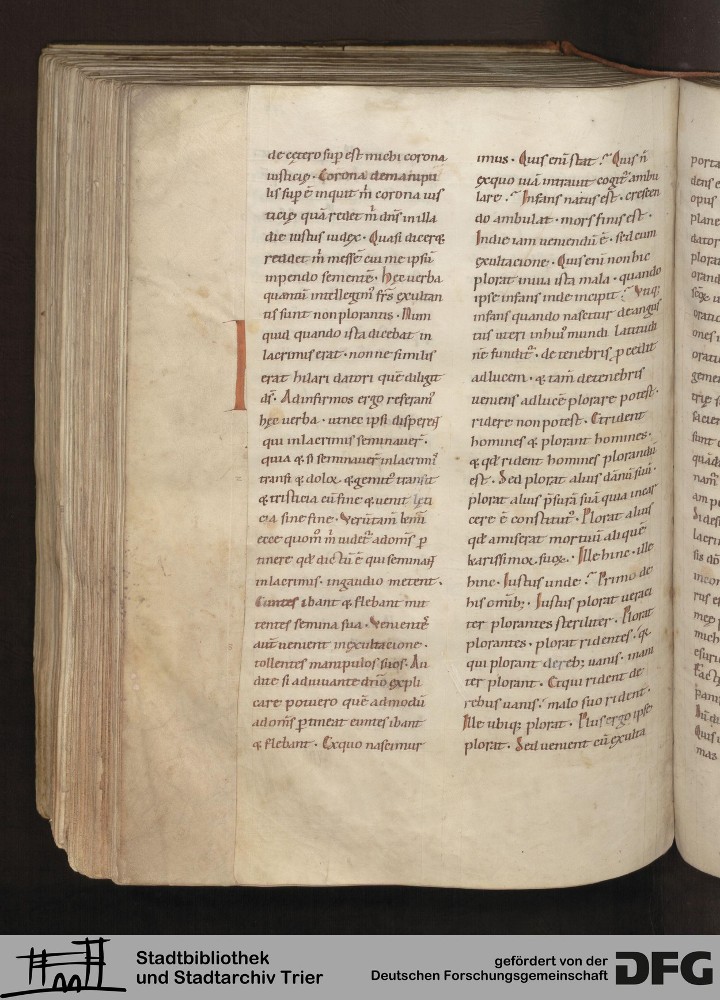 de cętero sup est michi corona
iusticię · Corona demanipu
lis sup ē inquit m̄ corona ius
ticię quā reddet m̄ dn̄s in illa
die iustus iudex · Quasi diceret
reddet m̄ messē cui me ipsū
inpendo sementē · Hęc uerba
quantū intellegim᷒ frs̄ exultan
tis sunt non plorantis · Num
quid quando ista dicebat in
lacrimis erat · nonne similis
erat hilari datori quē diligit
ds̄ · Ad infirmos ergo referam᷒
hęc uerba · ut nec ipsi disperent
qui in lacrimis seminauer̄ ·
quia & si seminauer̄ in lacrimis
transit & dolor & gemit᷒ transit
& tristicia cū fine & uenit lęti
cia sine fine · Verūtam̄
ecce quom᷒ m̄ uidet᷒ ad om̄s p
tinere qd̄ dictū ē qui seminant
in lacrimis · in gaudio metent ·
Euntes ibant & flebant mit
tentes semina sua · Venientes
aut̄ uenient in exultacione ·
tollentes manipulos suos · Au
dite si adiuuante dn̄o expli
care potuero quē admodū
ad om̄s ptineat euntes ibant
& flebant · Ex quo nascimur
imus · Quis enī stat? Quis n̄
ex quo uiā intrauit cogit᷒ ambu
lare? Infans natus est · crescen
do ambulat · mors finis est ·
Indie iam ueniendū ē · sed cum
exultacione · Quis enī non hic
plorat in uia ista mala · quando
ipse infans inde incipit?
infans quando nascitur de angus
tis uteri in hui᷒ mundi latitudi
nē fundit᷒ · de tenebris pcedit
ad lucem · & tam̄ de tenebris
ueniens ad lucē plorare potest ·
ridere non potest · Et rident
homines & plorant homines ·
& qd̄ rident homines plorandū
est · Sed plorat alius dānū suū ·
plorat alius p̄surā suā quia incar
cere ē constitut᷒ · Plorat alius
qd̄ amiserat mortuū aliquē
karissimor̄ suor̄ · Ille hinc · ille
hinc · Iustus unde? Primo de
his omīb; · Iustus plorat uerac
ter plorantes steriliter · Plorat
plorantes · plorat ridentes · q
qui plorant de reb; uanis · inani
ter plorant · Et qui rident de
rebus uanis · malo suo rident ·
Ille ubiq; plorat · Plus ergo ipse
plorat · Sed uenient cū exulta
Stadtbibliothek
und Stadtarchiv Trier
gefördert von der
Deutschen Forschungsgemeinschaft
DFG